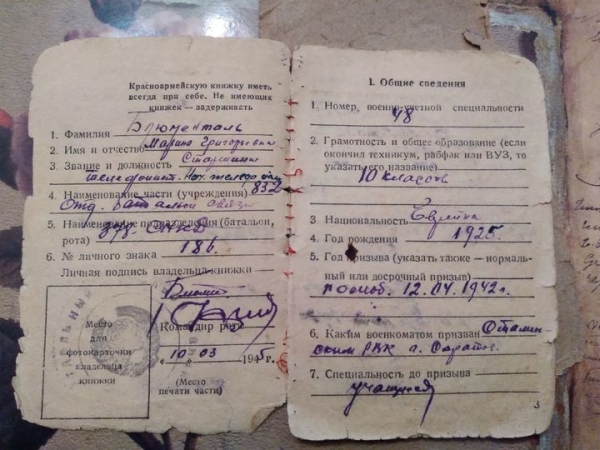 Красноармейскую книжку иметь
всегда при себе. Не имеющих
книжек — задерживать
1. Фамилия Блюменталь
2. Имя и отчество Марине Григорьевна
3. Звание и должность Старшина
телефонист.
4. Наименование части (учреждения) 832
Отд. батальон связи
5. Наименование подразделения (батальон,
рота)
6. № личного знака 186.
Личная подпись владельца книжки
Место
для
фотокарточки
владельца
книжки
Командир роты
„10 03 1945г.
(Место
печати части)
I. Общие сведения
1. Номер военно-учетной специальности
48
2. Грамотность и общее образование (если
окончил техникум, рабфак или ВУЗ, то
указать его название)
10 классов
3. Национальность Еврейка
4. Год рождения 1925.
5. Год призыва (указать также — нормаль-
ный или досрочный призыв)
по моб. 12.04.1942г.
6. Каким военкоматом призван
РВК г.
7. Специальность до призыва
учащаяся
3